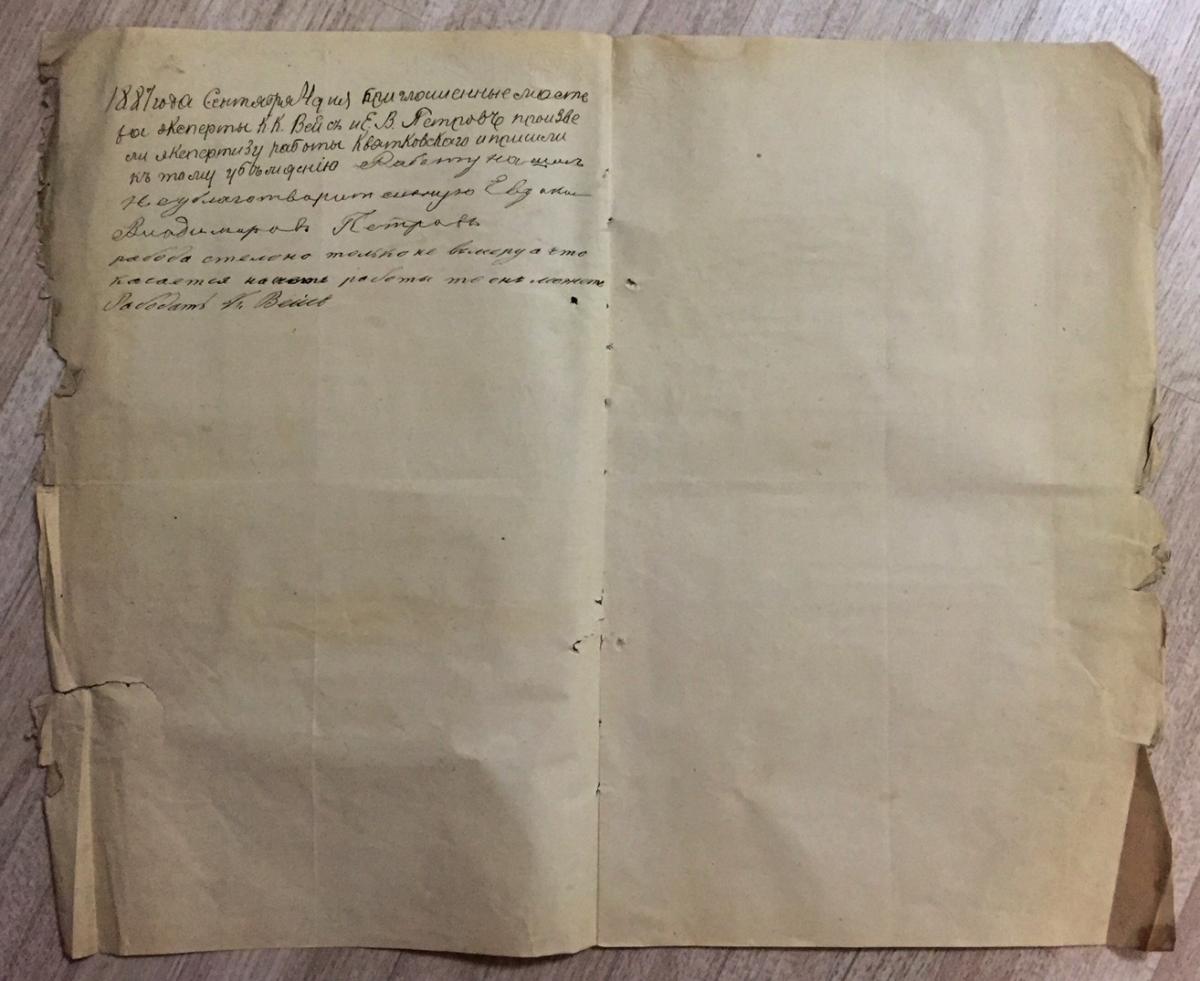 1887 года Сентября 4 дня приглошенные масте
ра экперты К К. Вейсъ и Е. В. Петровъ произве
ли экпертизу работы Квятковскаго и пришли
къ тому убѣждению Работу нашли
неублаготварительную Евдоким
Владимировъ Петровъ
работа стелоно только не вмеру а что
касается работы то онъ можетъ
Работать К. Вейсъ